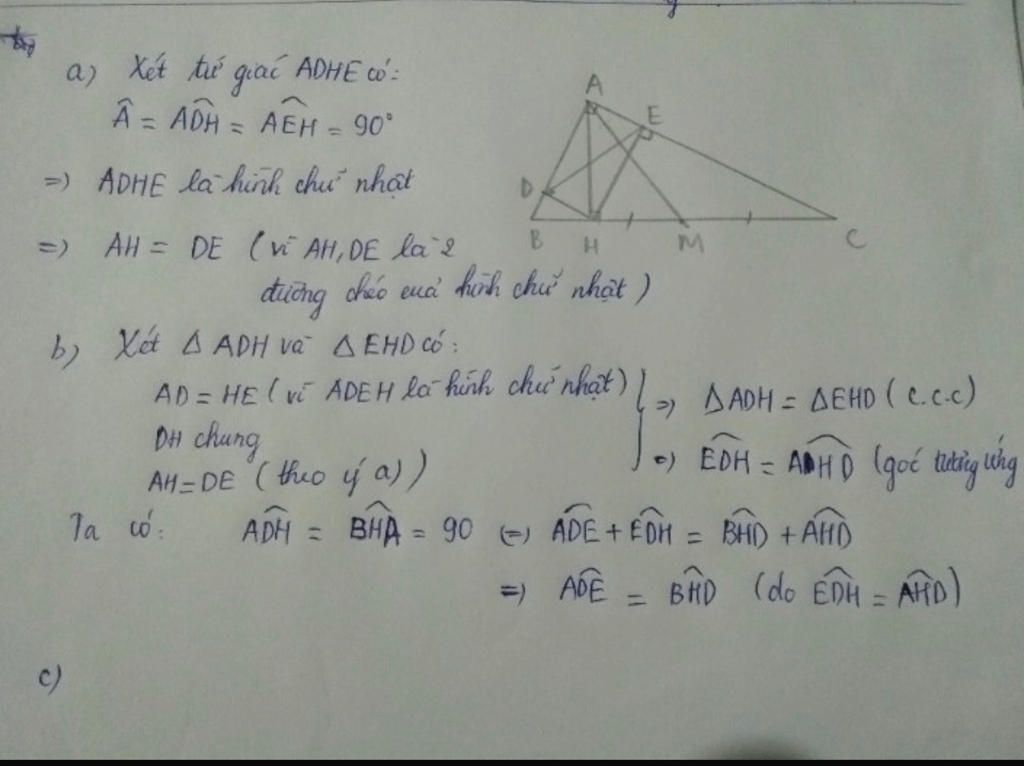 a) Xét tứ giác ADHE có:
Â = ADĤ = AÊH = 90°
=) ADHE là hình chữ nhật
=) AH = DE (vì AH, DE là 2
đường chéo của hình chữ nhật)
A
E
D
B H M C
b) Xét Δ ADH và Δ EHD có:
AD = HE (vì ADEH là hình chữ nhật)
DH chung
AH = DE (theo ý a))
=) ΔADH = ΔEHD (c.c.c)
=) EDH = AHD (góc tương ứng
Ta có: ADH = BHA = 90 (=) ADE + EDH = BHD + AHD
=) ADE = BHD (do EDH = AHD)
c)